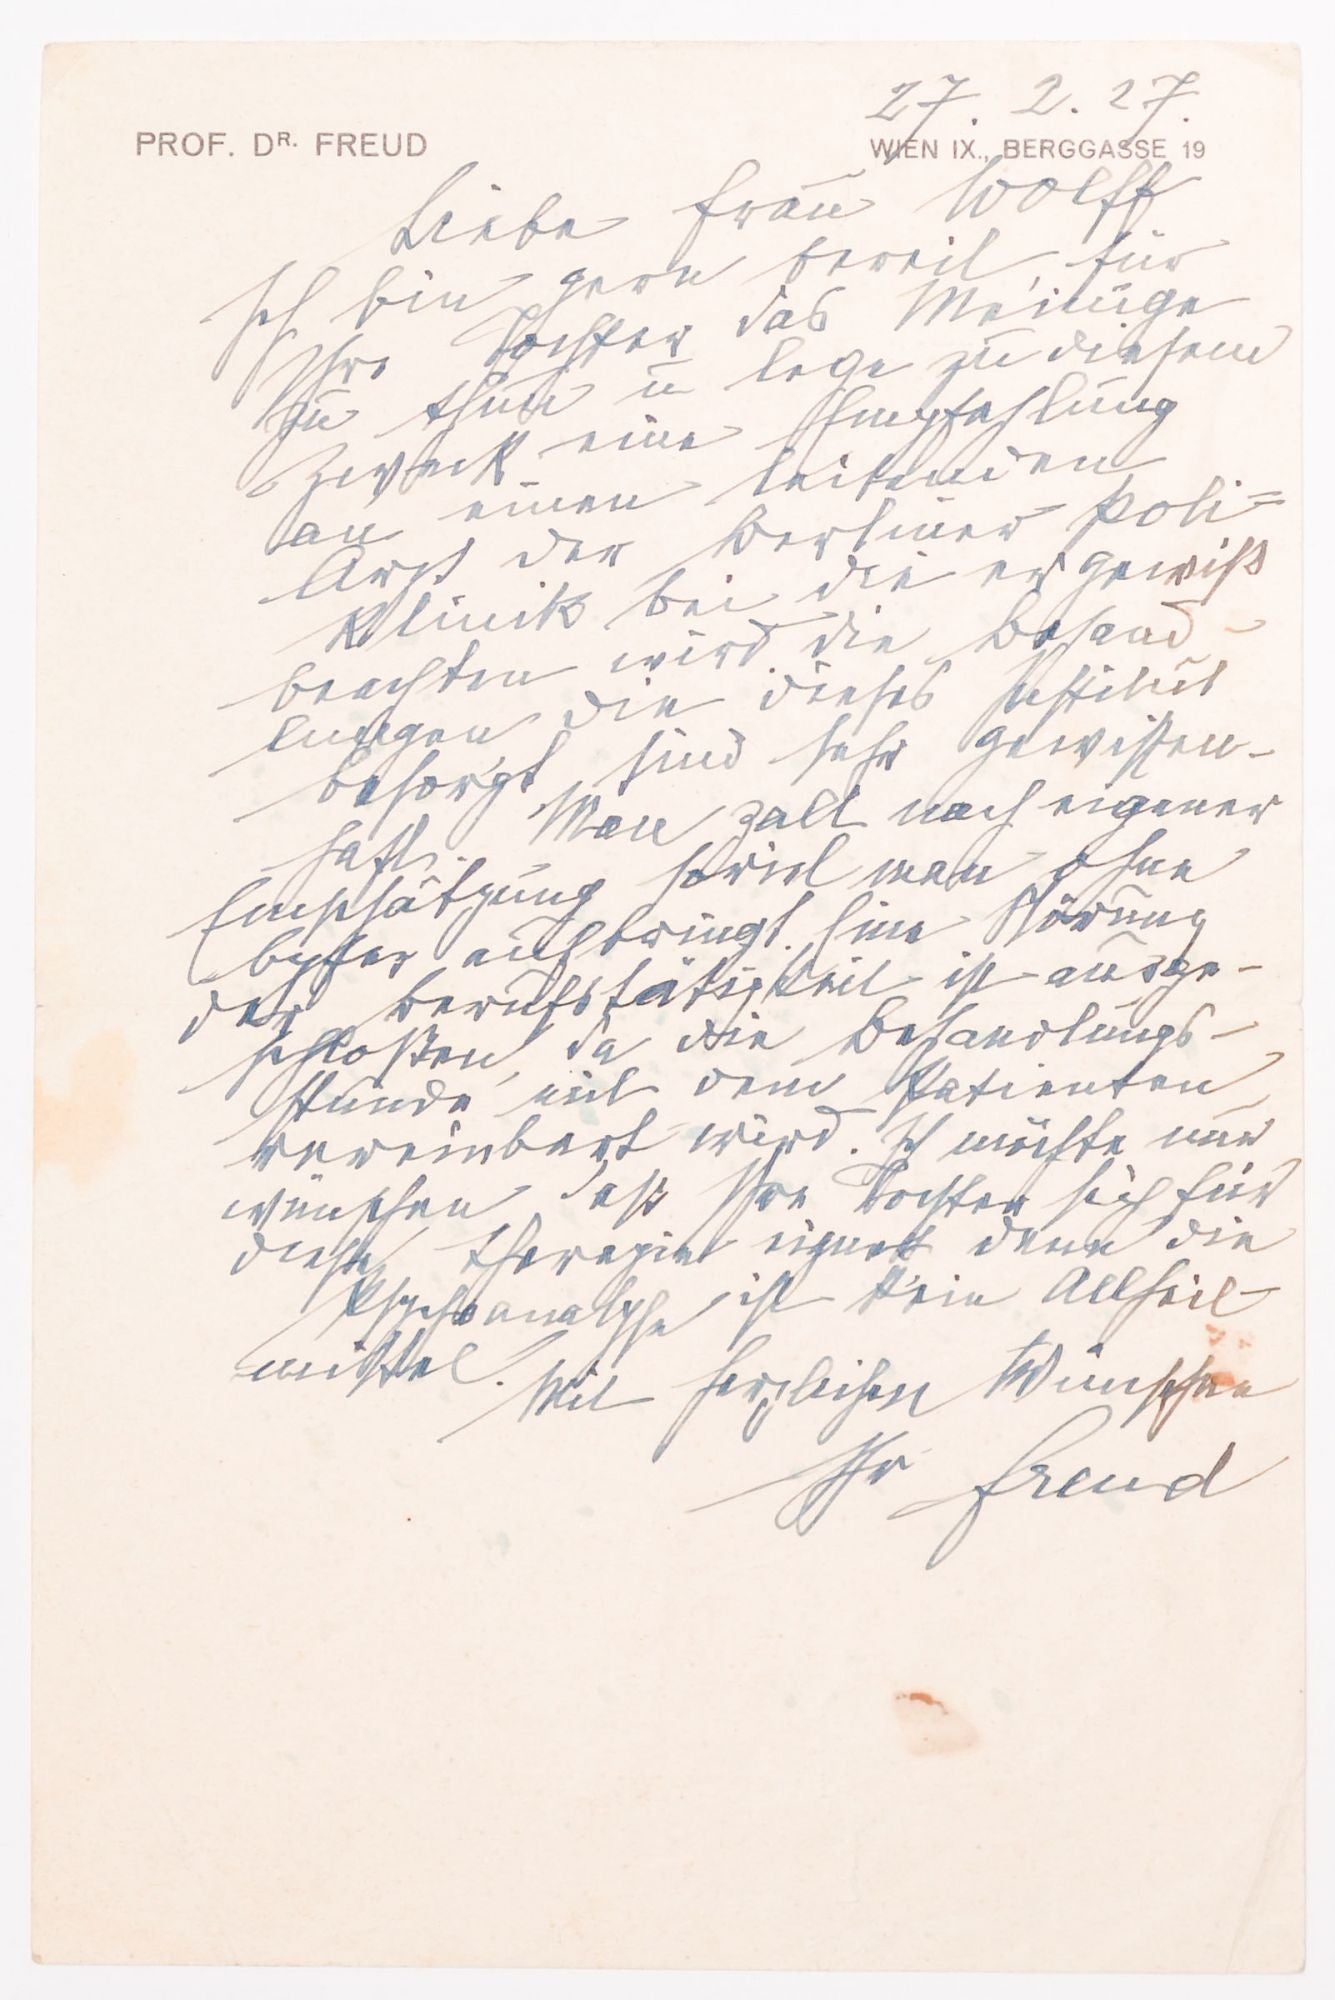 27. 2. 27.
PROF. DR. FREUD WIEN IX., BERGGASSE 19
Liebe Frau Wolff
Ich bin gern bereit, für
Ihre Tochter das Meinige
zu thun u lege zu diesem
Zweck eine Empfehlung
an einen leitenden
Arzt der Berliner Poli=
klinik bei die er gewiß
beachten wird. Die Behand-
lungen die dieses Institut
besorgt sind sehr gewissen-
haft. Man zalt nach eigener
Einschätzung soviel man ohne
Opfer aufbringt. Eine Störung
der Berufstätigkeit ist ausge-
schloßen, da die Behandlungs-
stunde mit dem Patienten
vereinbart wird. Ich möchte nur
wünschen daß Ihre Tochter sich für
diese Therapie eignet denn die
Psychoanalyse ist kein Allheil-
mittel.
Mit herzlichen Wünschen
Ihr Freud